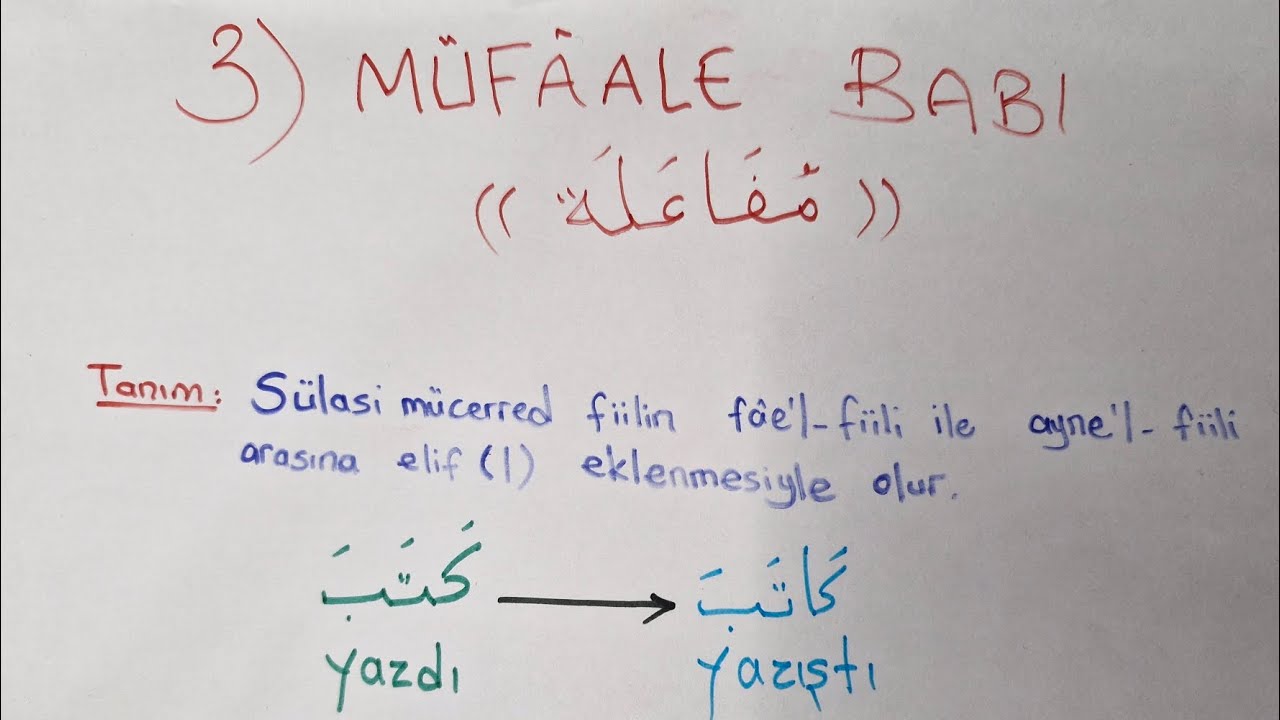 3) MÜFÂALE BABI
(( مُفَاعَلَة ))
Tanım: Sülasi mücerred fiilin fâe'l-fiili ile ayne'l-fiili
arasına elif (ا) eklenmesiyle olur.
كَتَبَ → كَاتَبَ
yazdı yazıştı